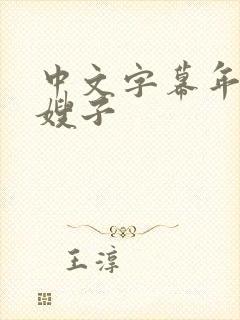 中文字幕年
嫂子
王淳